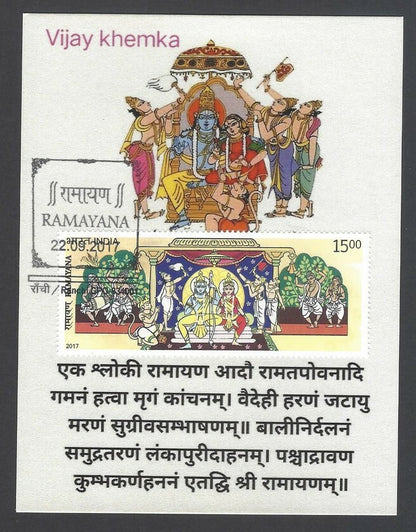 Vijay khemka
॥रामायण॥
RAMAYANA
22.09.2017
भारत INDIA
15.00
रामायण RAMAYANA
2017
राँची /
एक श्लोकी रामायण आदौ रामतपोवनादि
गमनं हत्वा मृगं कांचनम्। वैदेही हरणं जटायु
मरणं सुग्रीवसम्भाषणम्॥ बालीनिर्दलनं
समुद्रतरणं लंकापुरीदाहनम्। पश्चाद्रावण
कुम्भकर्णहननं एतद्धि श्री रामायणम्॥